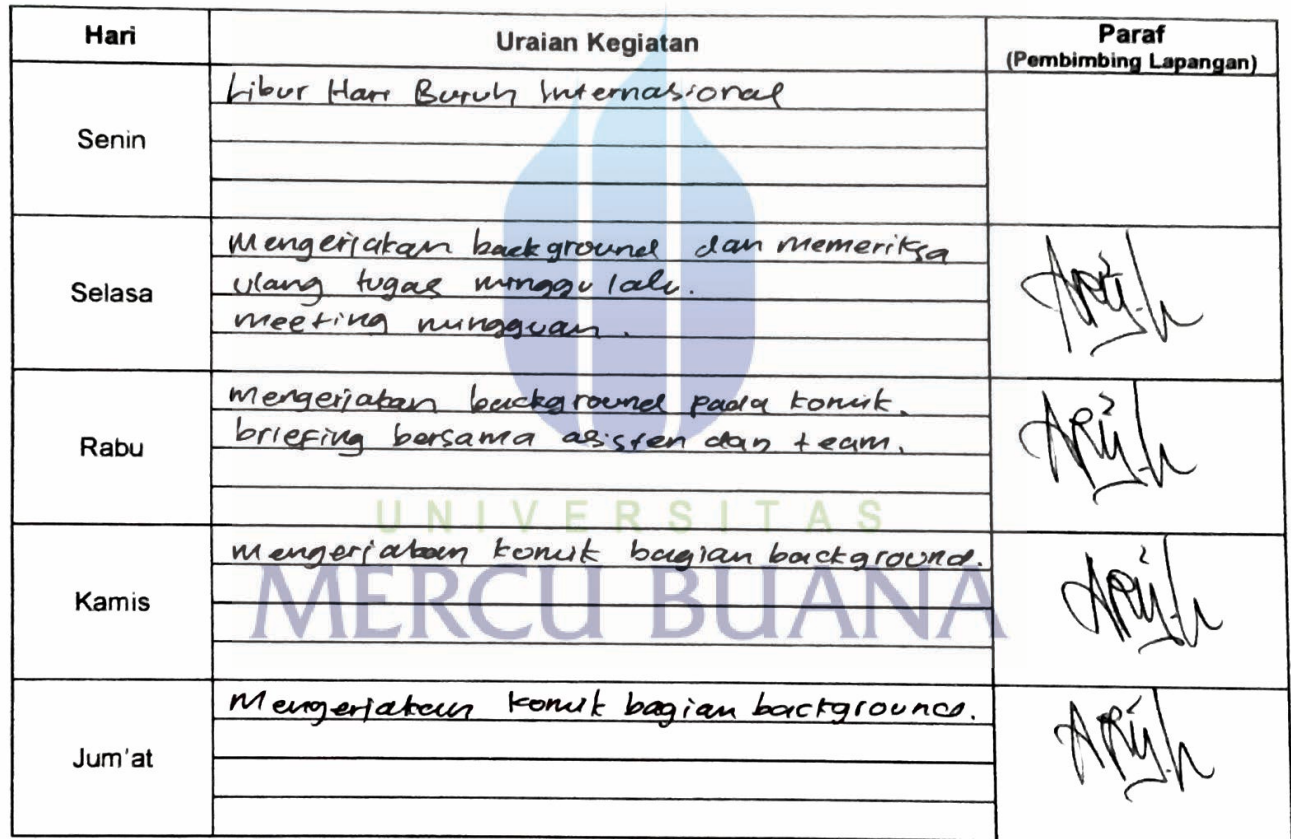 Hari Uraian Kegiatan Paraf
(Pembimbing Lapangan)
Senin
Libur Hari Buruh Internasional
Selasa
Mengerjakan background dan memeriksa
ulang tugas minggu lalu.
meeting mingguan.
Rabu
Mengerjakan background pada komik.
briefing bersama asisten dan team.
UNIVERSITAS
MERCU BUANA
Kamis
Mengerjakan komik bagian background.
Jum'at
Mengerjakan komik bagian background.